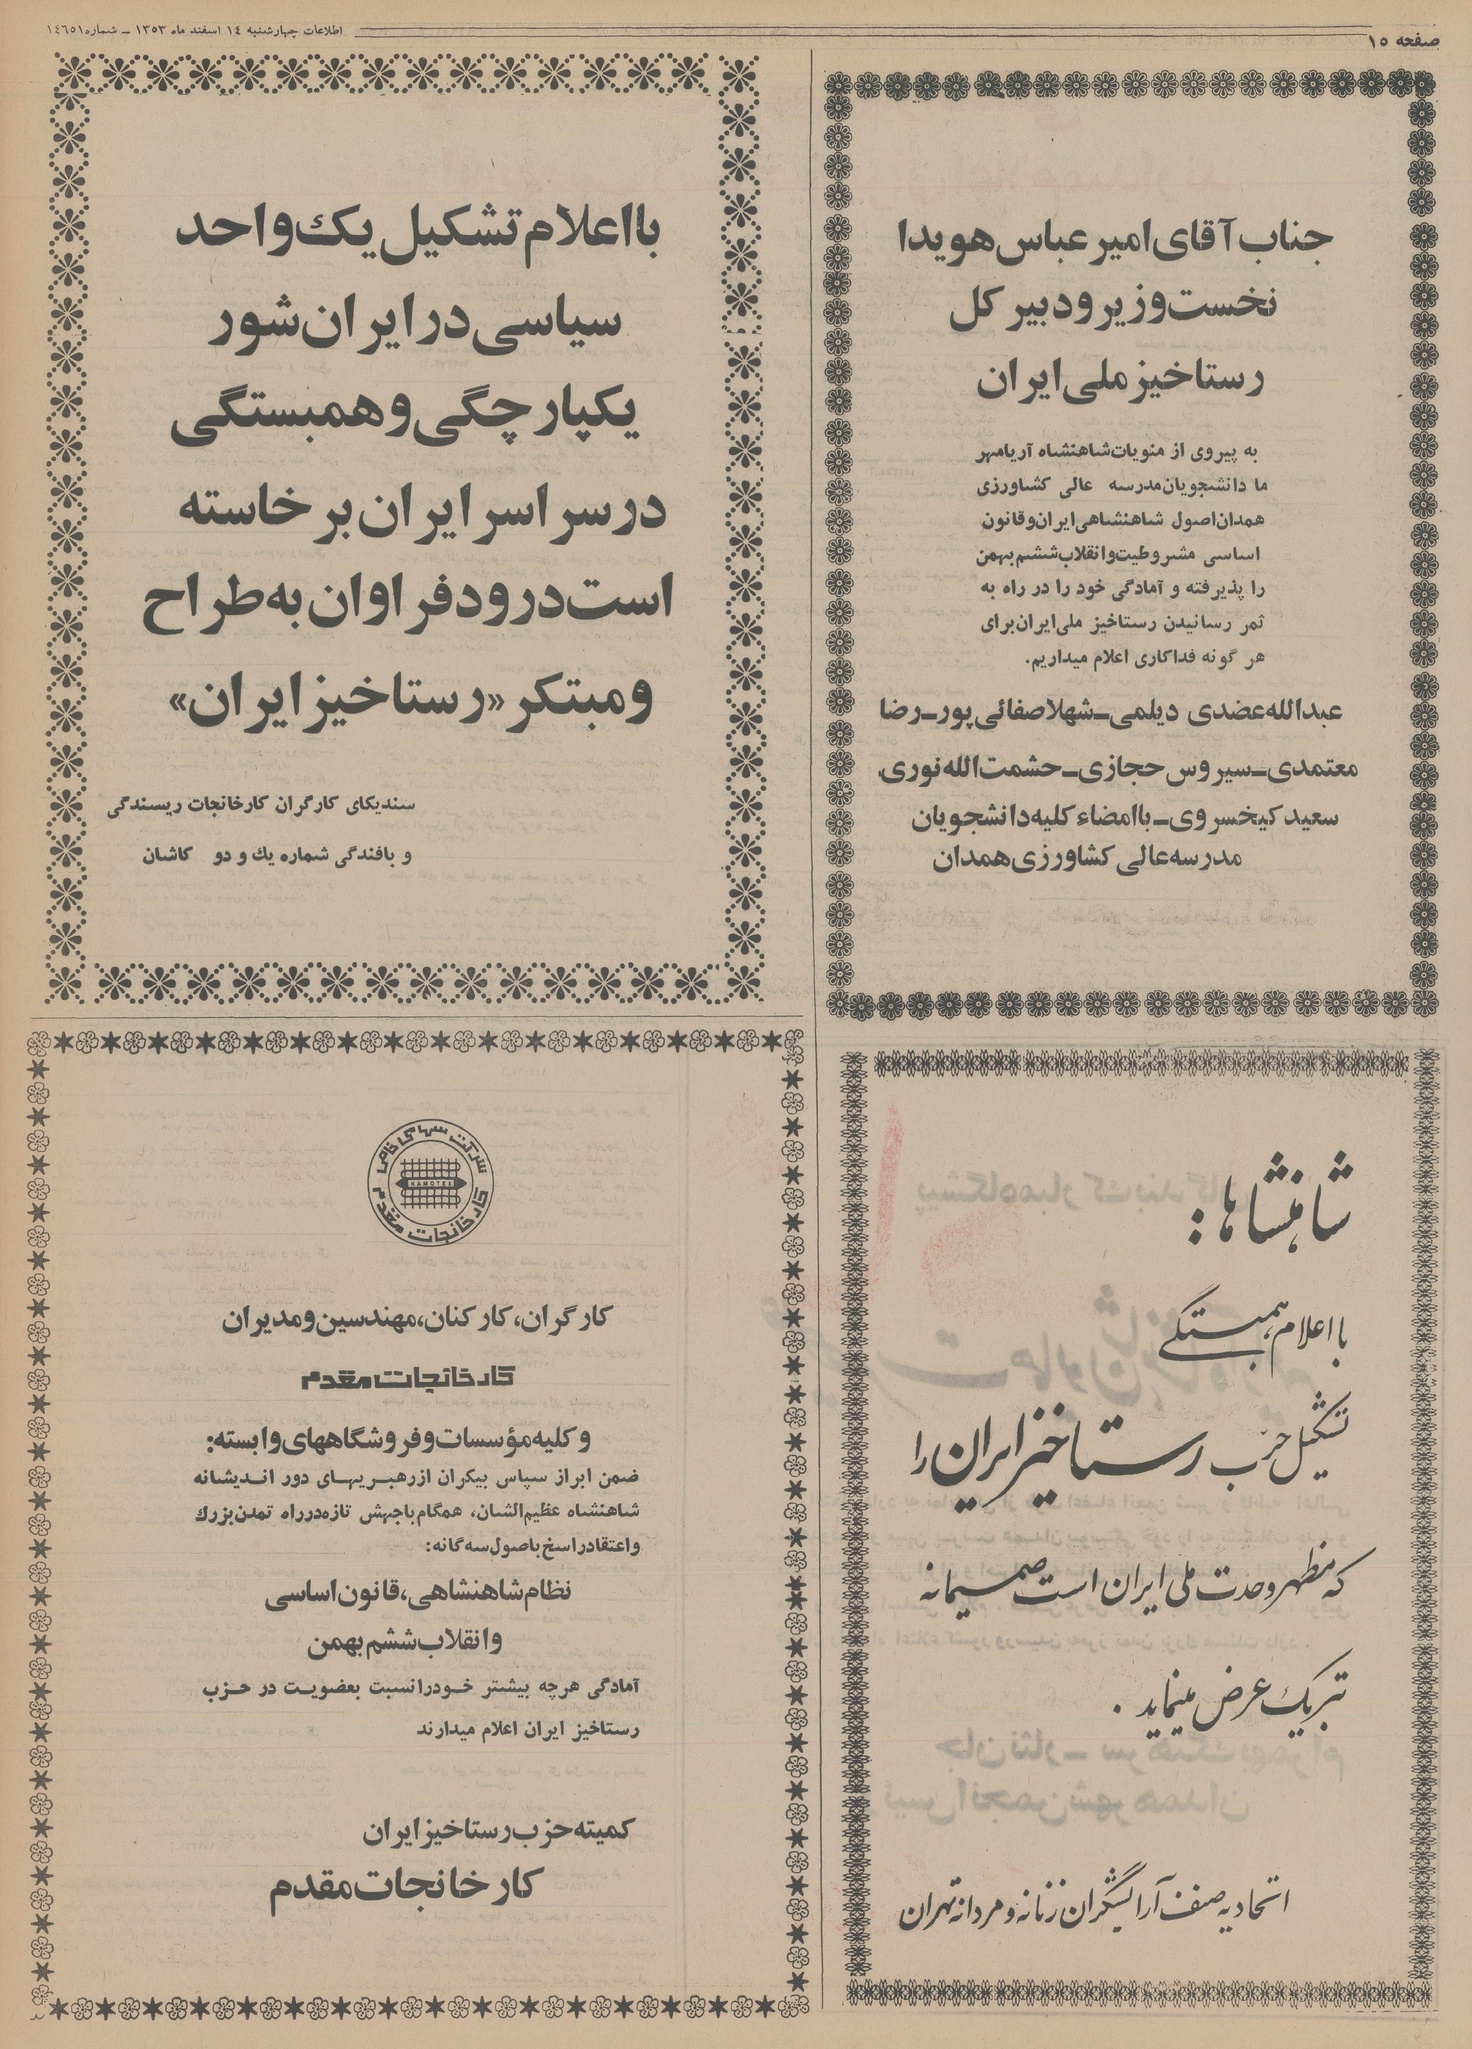 صفحه ۱۵
اطلاعات چهارشنبه ۱۴ اسفند ماه ۱۳۵۳ ـ شماره ۱۴۶۵۱
جناب آقای امیر عباس هویدا
نخست وزیر و دبیر کل
رستاخیز ملی ایران
به پیروی از منویات شاهنشاه آریامهر
ما دانشجویان مدرسه عالی کشاورزی
همدان اصول شاهنشاهی ایران و قانون
اساسی مشروطیت و انقلاب ششم بهمن
را پذیرفته و آمادگی خود را در راه به
ثمر رسانیدن رستاخیز ملی ایران برای
هر گونه فداکاری اعلام میداریم.
عبدالله عضدی دیلمی ـ شهلا صفائی پور ـ رضا
معتمدی ـ سیروس حجازی ـ حشمت الله نوری
سعید کیخسروی ـ با امضاء کلیه دانشجویان
مدرسه عالی کشاورزی همدان
با اعلام تشکیل یک واحد
سیاسی در ایران شور
یکپارچگی و همبستگی
در سراسر ایران برخاسته
است درود فراوان به طراح
و مبتکر «رستاخیز ایران»
سندیکای کارگران کارخانجات ریسندگی
و بافندگی شماره یك و دو کاشان
شاهنشاها:
با اعلام همبستگی
تشکیل حزب رستاخیز ایران را
که مظهر وحدت ملی ایران است صمیمانه
تبریک عرض مینماید .
اتحادیه صنف آرایشگران زنانه و مردانه تهران
شرکت سهامی خاص
KAMOTEX
کارخانجات مقدم
کارگران، کارکنان، مهندسین و مدیران
کارخانجات مقدم
و کلیه مؤسسات و فروشگاههای وابسته:
ضمن ابراز سپاس بیکران از رهبریهای دور اندیشانه
شاهنشاه عظیم الشان، همگام با جهش تازه در راه تمدن بزرك
و اعتقاد راسخ باصول سه گانه:
نظام شاهنشاهی، قانون اساسی
و انقلاب ششم بهمن
آمادگی هرچه بیشتر خود را نسبت بعضویت در حزب
رستاخیز ایران اعلام میدارند
کمیته حزب رستاخیز ایران
کارخانجات مقدم